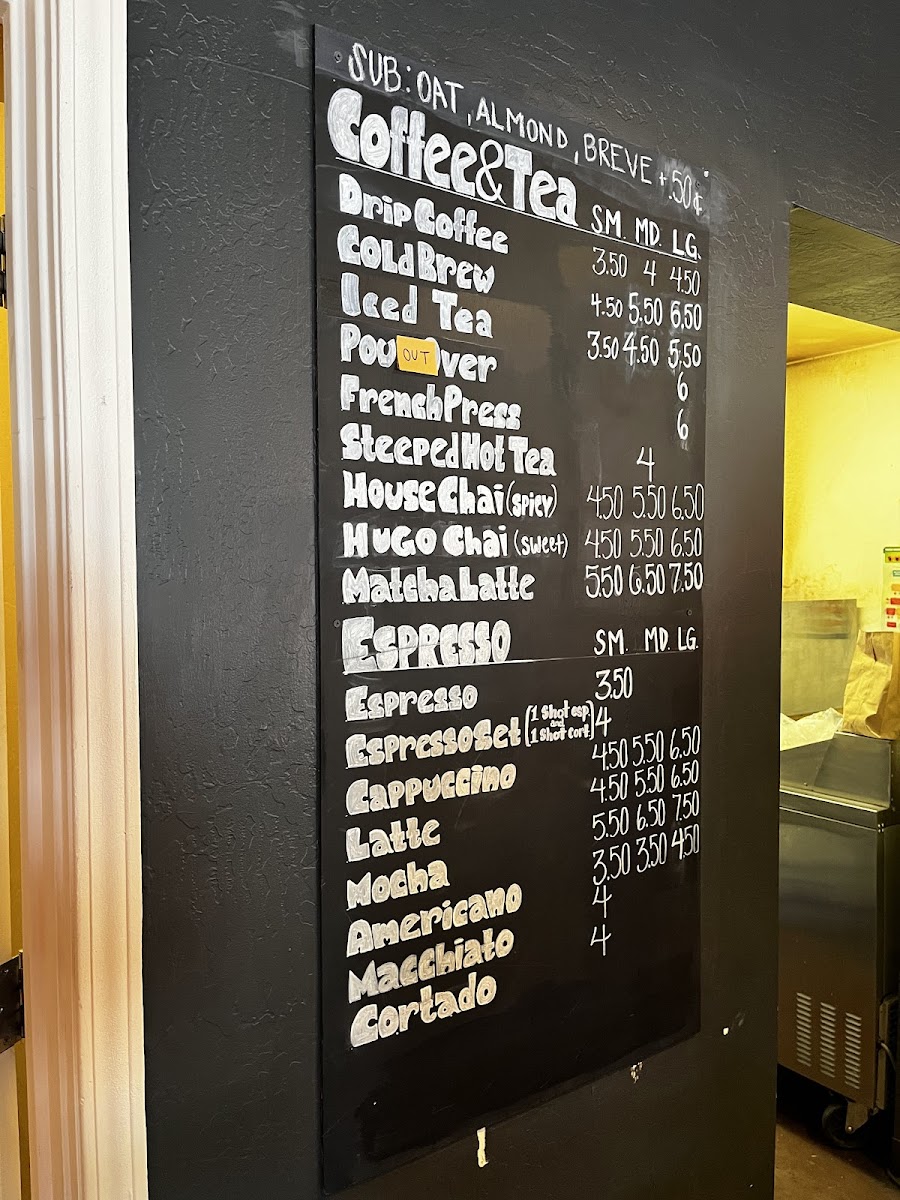 SUB: OAT, ALMOND, BREVE +.50¢
Coffee & Tea SM. MD. LG.
Drip Coffee 3.50 4 4.50
Cold Brew 4.50 5.50 6.50
Iced Tea 3.50 4.50 5.50
Pou OUT Over 6
French Press 6
Steeped Hot Tea 4
House Chai (SPICY) 4.50 5.50 6.50
HUGO Chai (sweet) 4.50 5.50 6.50
Matcha Latte 5.50 6.50 7.50
ESPRESSO SM. MD. LG.
Espresso 3.50
Espresso Set (1 Shot esp. and 1 shot cort.) 4
Cappuccino 4.50 5.50 6.50
Latte 4.50 5.50 6.50
Mocha 5.50 6.50 7.50
Americano 3.50 3.50 4.50
Macchiato 4
Cortado 4